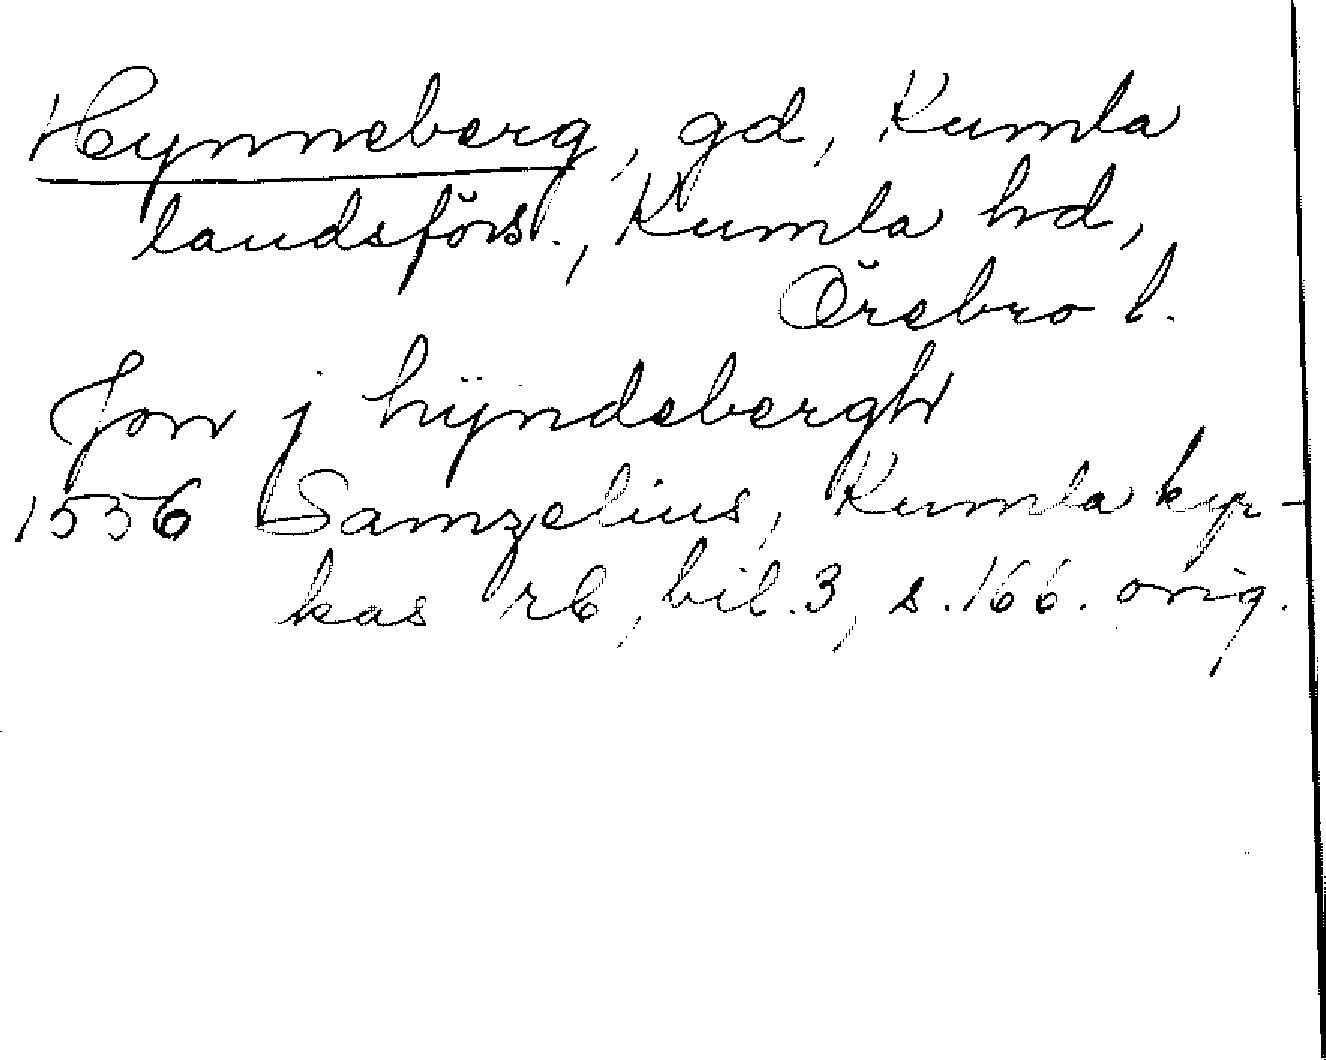 Hynneberg, gd, Kumla
landsförs., Kumla hd,
Örebro l.
Jon j hÿndebergh
1556 Samzelius, Kumla kyr-
kas rb, bil. 3, s. 166. orig.